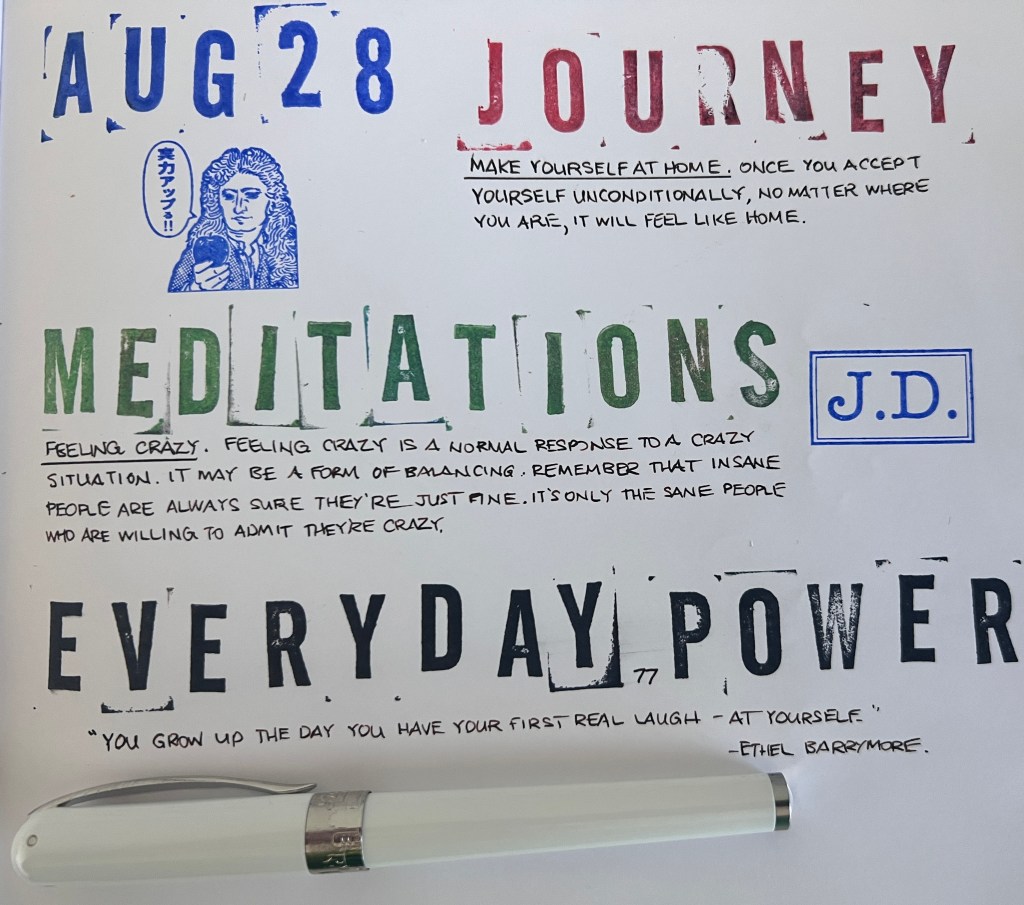 AUG 28
JOURNEY
実力アップる!!
MAKE YOURSELF AT HOME. ONCE YOU ACCEPT
YOURSELF UNCONDITIONALLY, NO MATTER WHERE
YOU ARE, IT WILL FEEL LIKE HOME.
MEDITATIONS
J.D.
FEELING CRAZY. FEELING CRAZY IS A NORMAL RESPONSE TO A CRAZY
SITUATION. IT MAY BE A FORM OF BALANCING. REMEMBER THAT INSANE
PEOPLE ARE ALWAYS SURE THEY'RE JUST FINE. IT'S ONLY THE SANE PEOPLE
WHO ARE WILLING TO ADMIT THEY'RE CRAZY.
EVERYDAY POWER
77
"YOU GROW UP THE DAY YOU HAVE YOUR FIRST REAL LAUGH – AT YOURSELF."
–ETHEL BARRYMORE.